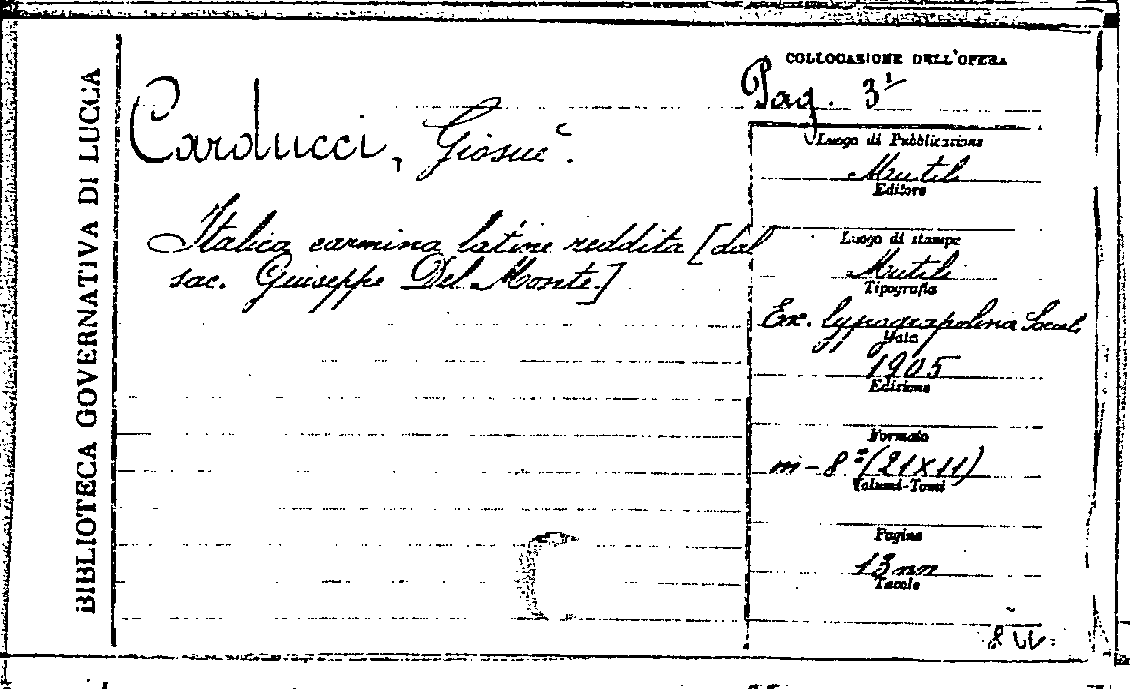 BIBLIOTECA GOVERNATIVA DI LUCCA
COLLOCAZIONE DELL'OPERA
Pag. 3¹
Carducci, Giosuè.
Italica carmina latine reddita [dal
sac. Giuseppe Del Monte.]
Luogo di Pubblicazione
Mutili
Editore
Luogo di stampe
Mutili
Tipografia
Ex. typographia
Data
1905
Edizione
Formato
in-8º (21x11)
Volumi-Tomi
Pagine
13 nn
Tavole